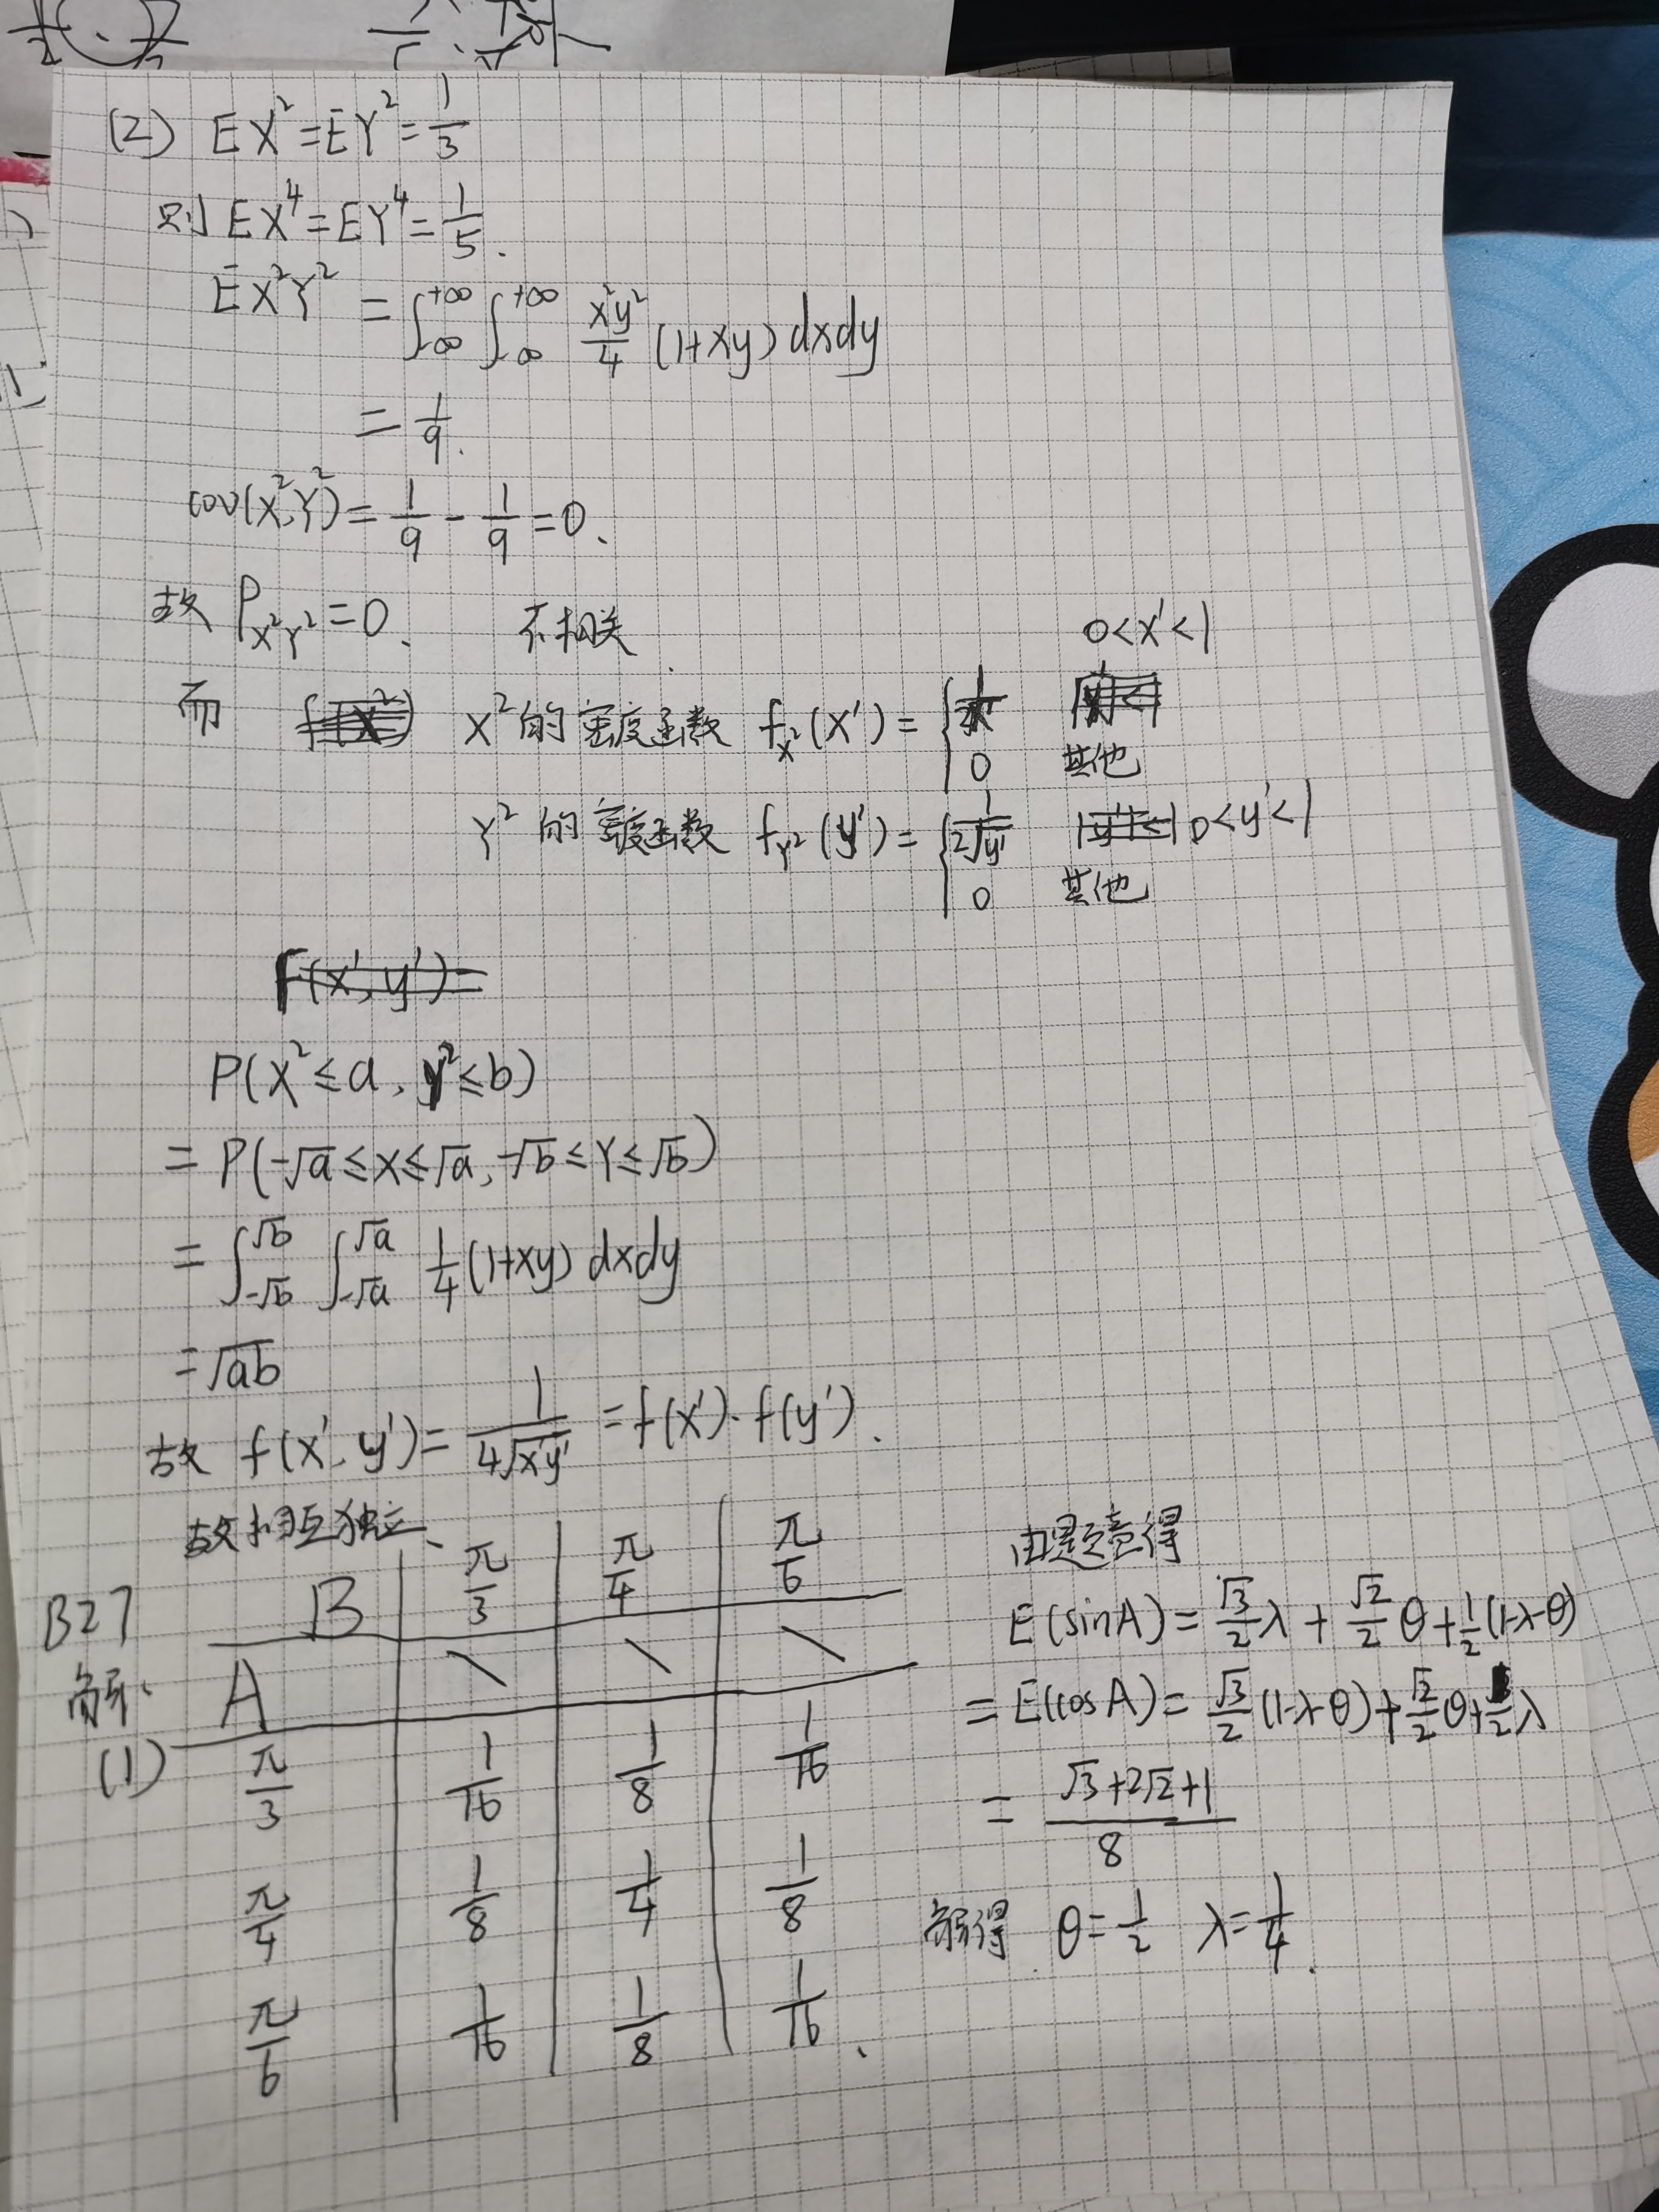 (2) EX²=EY²=1/3
则 EX⁴=EY⁴=1/5.
EX²Y² = ∫_{-∞}^{+∞} ∫_{-∞}^{+∞} x²y²/4 (1+xy) dxdy
= 1/9.
cov(X²,Y²) = 1/9 - 1/9 = 0.
故 ρ_{X²Y²}=0. 不相关.
0<x'<1
而 X²的密度函数 f_{X²}(x') = {
0 其他
Y²的密度函数 f_{Y²}(y') = { 1/(2√y') 0<y'<1
0 其他
P(X²≤a, Y²≤b)
= P(-√a≤X≤√a, -√b≤Y≤√b)
= ∫_{-√b}^{√b} ∫_{-√a}^{√a} 1/4 (1+xy) dxdy
= √ab
故 f(x',y') = 1/(4√x'y') = f(x')·f(y').
故相互独立.
B27
解:
(1)
B π/3 π/4 π/6
A \ \ \
π/3 1/16 1/8 1/16
π/4 1/8 1/4 1/8
π/6 1/16 1/8 1/16.
由题意得
E(sinA) = √3/2 λ + √2/2 θ + 1/2 (1-λ-θ)
= E(cosA) = √3/2 (1-λ-θ) + √2/2 θ + 1/2 λ
= (√3+2√2+1)/8
解得 θ=1/2 λ=1/4.